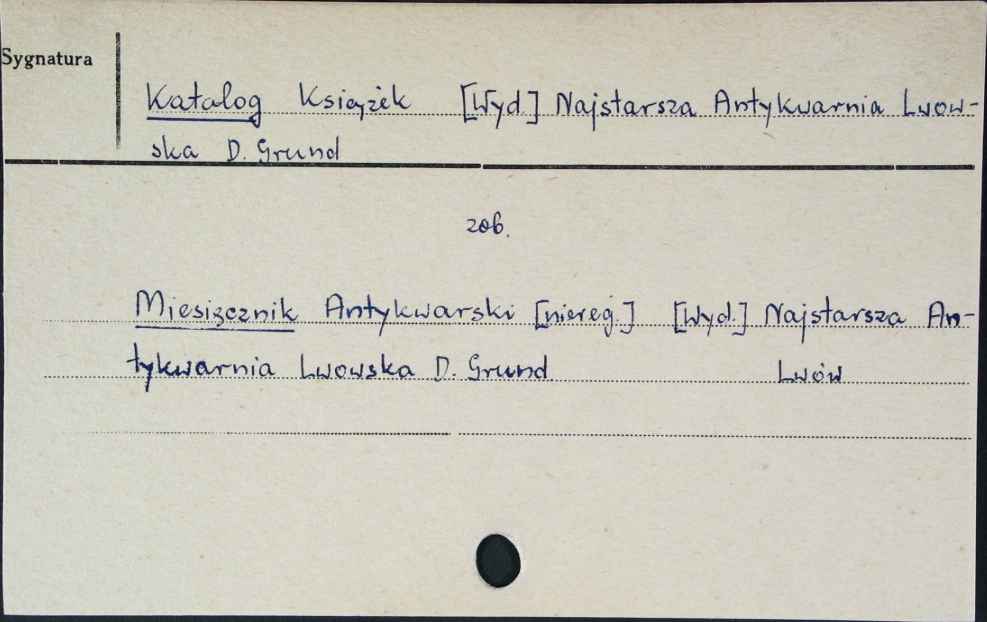 Sygnatura
Katalog Książek [Wyd.] Najstarsza Antykwarnia Lwow-
ska D. Grund
zob.
Miesięcznik Antykwarski [niereg.] [Wyd.] Najstarsza An-
tykwarnia Lwowska D. Grund. Lwów